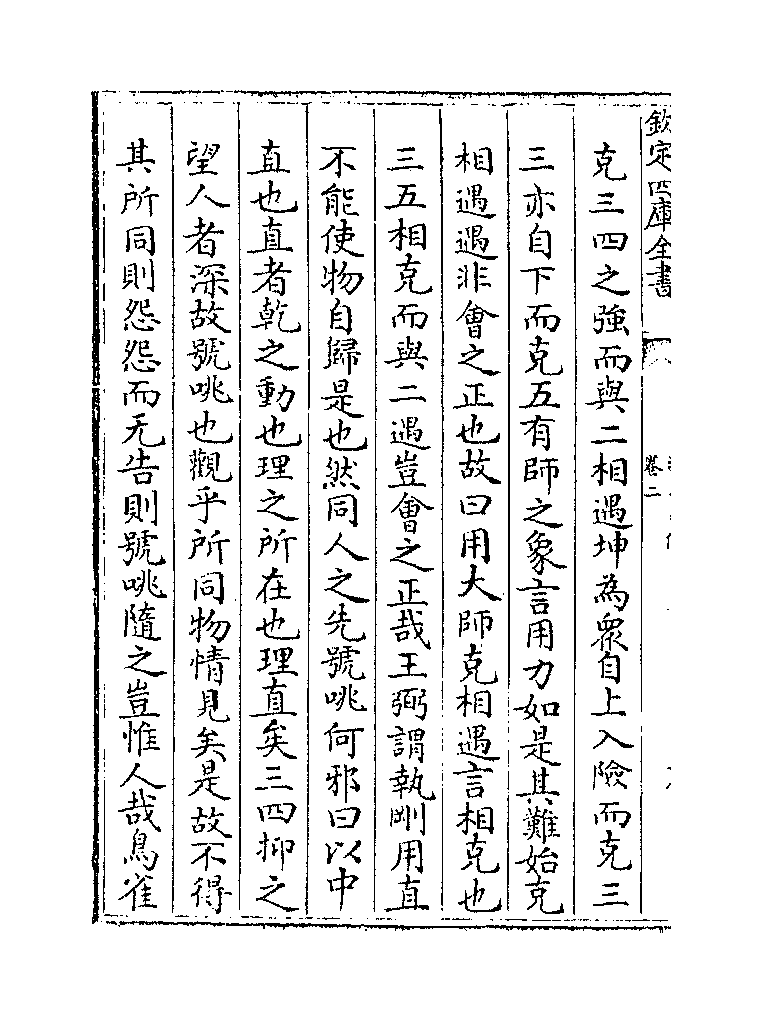 欽定四庫全書
卷二
克三四之強而與二相遇坤為衆自上入險而克三
三亦自下而克五有師之象言用力如是其難始克
相遇遇非會之正也故曰用大師克相遇言相克也
三五相克而與二遇豈會之正哉王弼謂執剛用直
不能使物自歸是也然同人之先號咷何邪曰以中
直也直者乾之動也理之所在也理直矣三四抑之
望人者深故號咷也觀乎所同物情見矣是故不得
其所同則怨怨而无告則號咷隨之豈惟人哉鳥雀